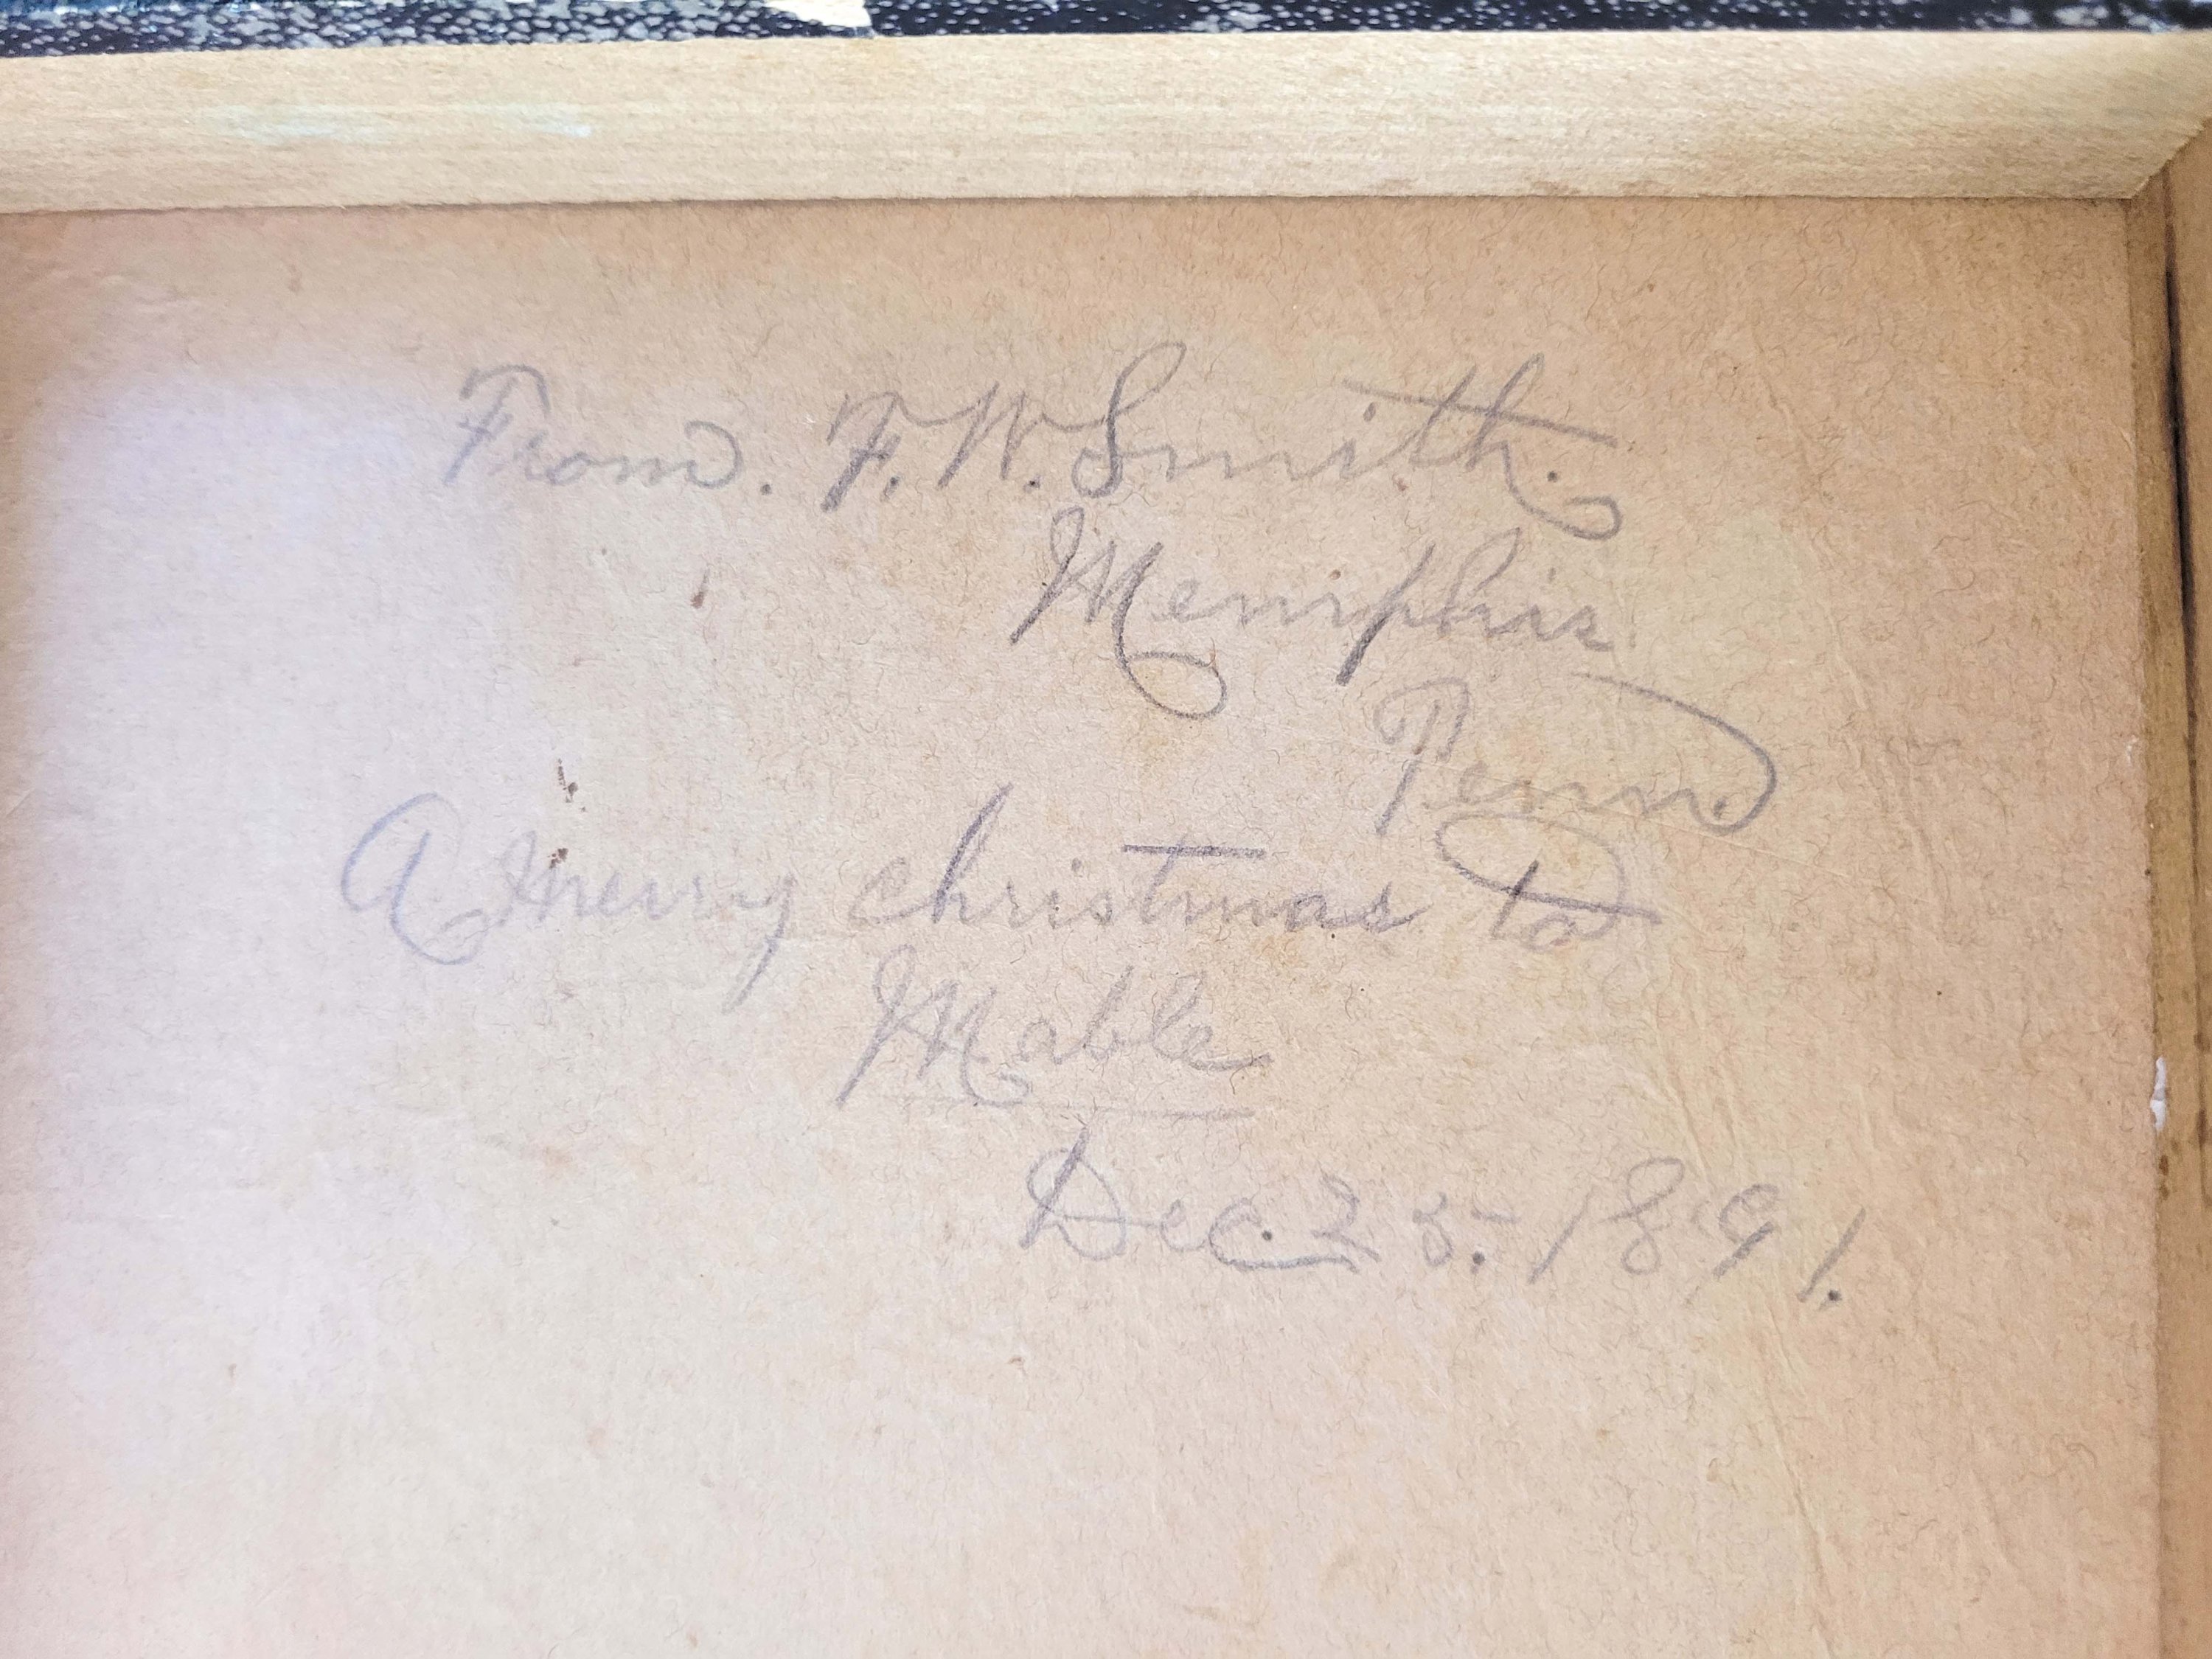 From. F. W. Smith.
Memphis
Tenn.
A merry christmas to
Mable
Dec. 25. 1891.